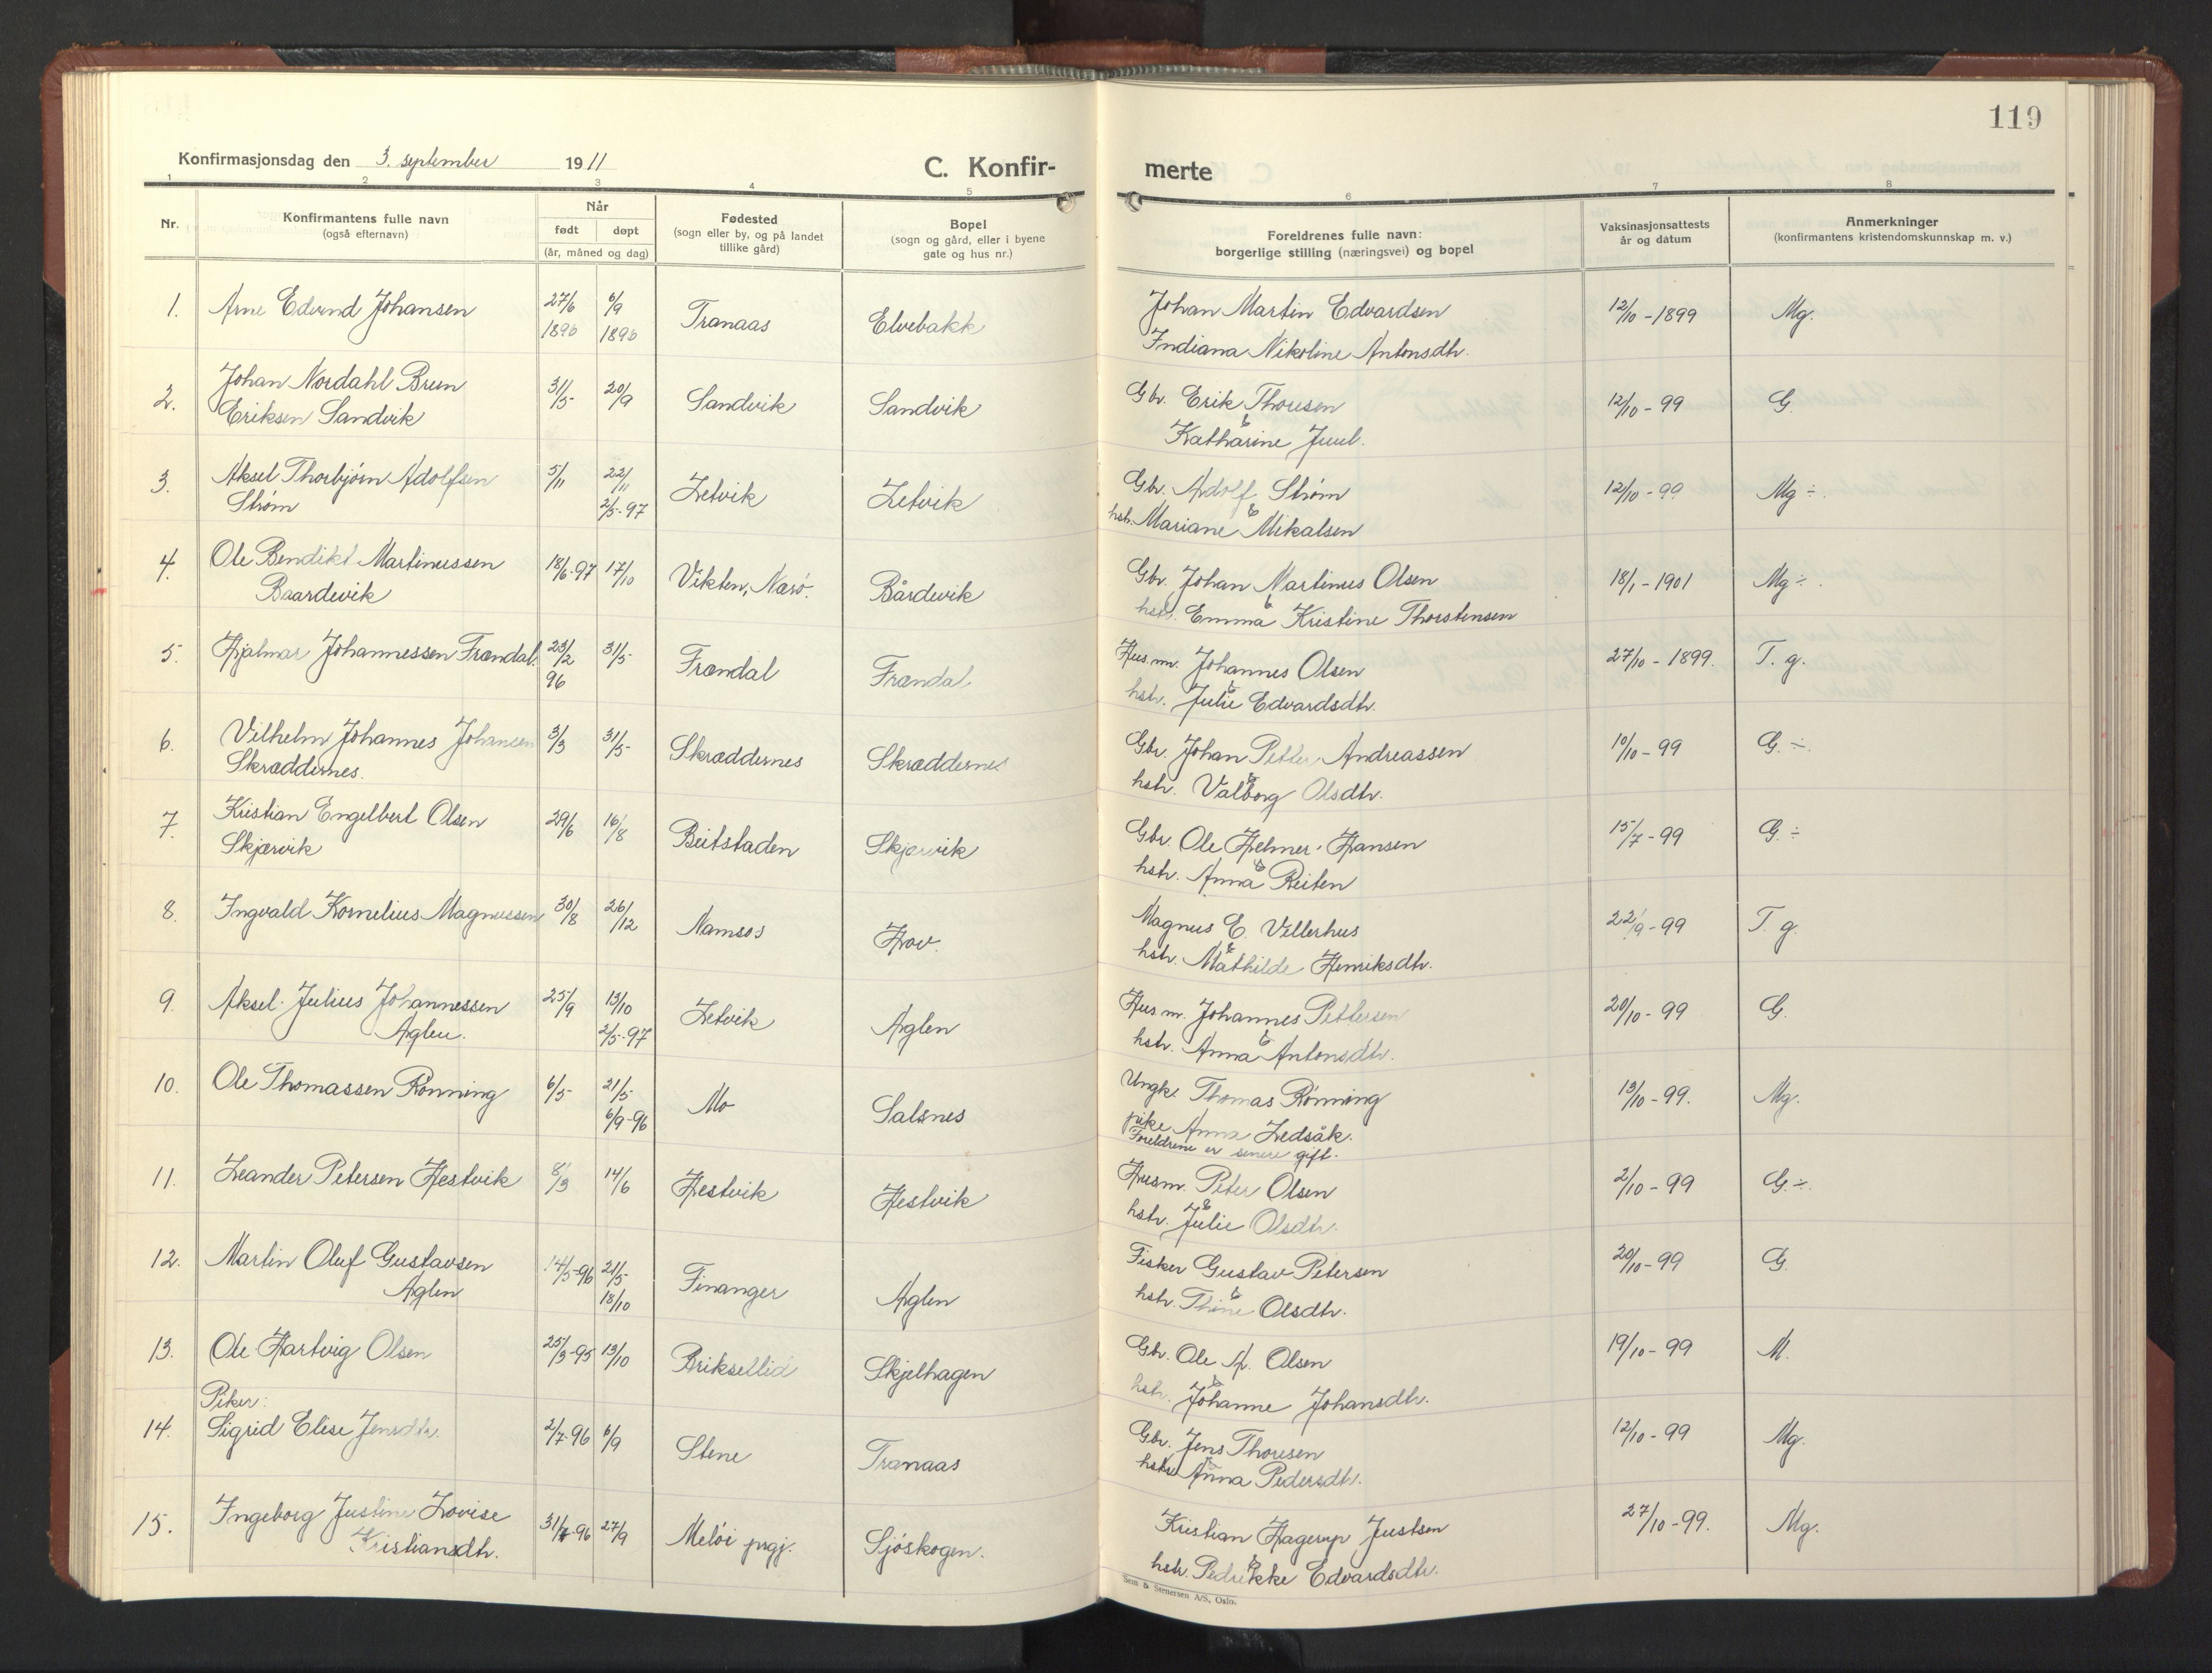 119
Konfirmasjonsdag den 3. september 1911
C. Konfir-
merte
1 2 3 4 5 6 7 8
Nr.
Konfirmantens fulle navn
(også efternavn)
Når
født døpt
(år, måned og dag)
Fødested
(sogn eller by, og på landet
tillike gård)
Bopel
(sogn og gård, eller i byene
gate og hus nr.)
Foreldrenes fulle navn:
borgerlige stilling (næringsvei) og bopel
Vaksinasjonsattests
år og datum
Anmerkninger
(konfirmantens kristendomskunnskap m. v.)
1. Arne Edvind Johansen 27/6 1896 6/9 1896 Tranaas Elvebakk Johan Martin Edvardsen 12/10 - 1899 Mg.
Indiana Nikoline Antonsdtr.
2. Johan Nordahl Brun 31/5 20/9 Sandvik Sandvik Gbr. Erik Thoresen 12/10 - 99 G.
Eriksen Sandvik & Katharine Juul.
3. Aksel Thorbjörn Adolfsen 5/11 22/11 Letvik Letvik Gbr. Adolf Strøm 12/10 - 99 Mg ÷.
Strøm 2/5-97 & hstr. Mariane Mikalsen
4. Ole Bendikt Martinussen 18/6-97 17/10 Vikten, Narö. Bårdevik Gbr. Johan Martinus Olsen 18/1 - 1901 Mg ÷.
Baardevik & hstr. Emma Kristine Thorstensen
5. Hjalmar Johannessen Frændal. 23/2 96 31/5 Frændal Frændal Husm. Johannes Olsen 27/10 - 1899. T. g.
& hstr. Julie Edvardsdtr.
6. Vilhelm Johannes Johansen 3/3 31/5 Skræddernes Skræddernes Gbr. Johan Petter Andreassen 10/10 - 99 G. ÷.
Skræddernes. & hstr. Valborg Olsdtr.
7. Kristian Engelbert Olsen 29/6 16/8 Beitstaden Skjærvik Gbr. Ole Helmer Hansen 15/7 - 99 G ÷
Skjærvik & hstr. Anna Reiten
8. Ingvald Kornelius Magnussen 30/8 26/12 Namsos Hov. Magnus E. Villerhus 22/9 - 99 T. g.
& hstr. Mathilde Henriksdtr.
9. Aksel Julius Johannessen 25/9 13/10 Letvik Aglen Husm. Johannes Pettersen 20/10 - 99 G.
Aglen. 2/5-97 & hstr. Anna Antonsdtr.
10. Ole Thomassen Rönning 6/5 21/5 Mo Salsnes Ungk. Thomas Rönning 13/10 - 99. Mg.
6/9-96 pike Anna Ledsåk.
Foreldrene er senere gift.
11. Leander Petersen Hestvik 8/3 14/6 Hestvik Hestvik Husm. Peter Olsen 2/10 - 99 G ÷.
& hstr. Julie Olsdtr.
12. Martin Oluf Gustavsen 14/5-96 21/5 Finanger Aglen Fisker Gustav Petersen 20/10 - 99 G.
Aglen 18/10 & hstr. Thine Olsdtr.
13. Ole Hartvig Olsen 25/3-95 13/10 Briksellid Skjelhagen Gbr. Ole A. Olsen 19/10 - 99 M.
& hstr. Johanne Johansdtr.
Piker:
14. Sigrid Elise Jensdtr. 2/7-96 6/9 Stene Tranaas Gbr. Jens Thoresen 12/10 - 99 Mg.
& hstr. Anna Pedersdtr.
15. Ingeborg Justine Lovise 31/7-96 27/9 Melöi prgj. Sjöskogen. Kristian Hagerup Justsen 27/10 - 99. Mg.
Kristiansdtr. & hstr. Pedrikke Edvardsdtr.
Sem & Stenersen A/S, Oslo.